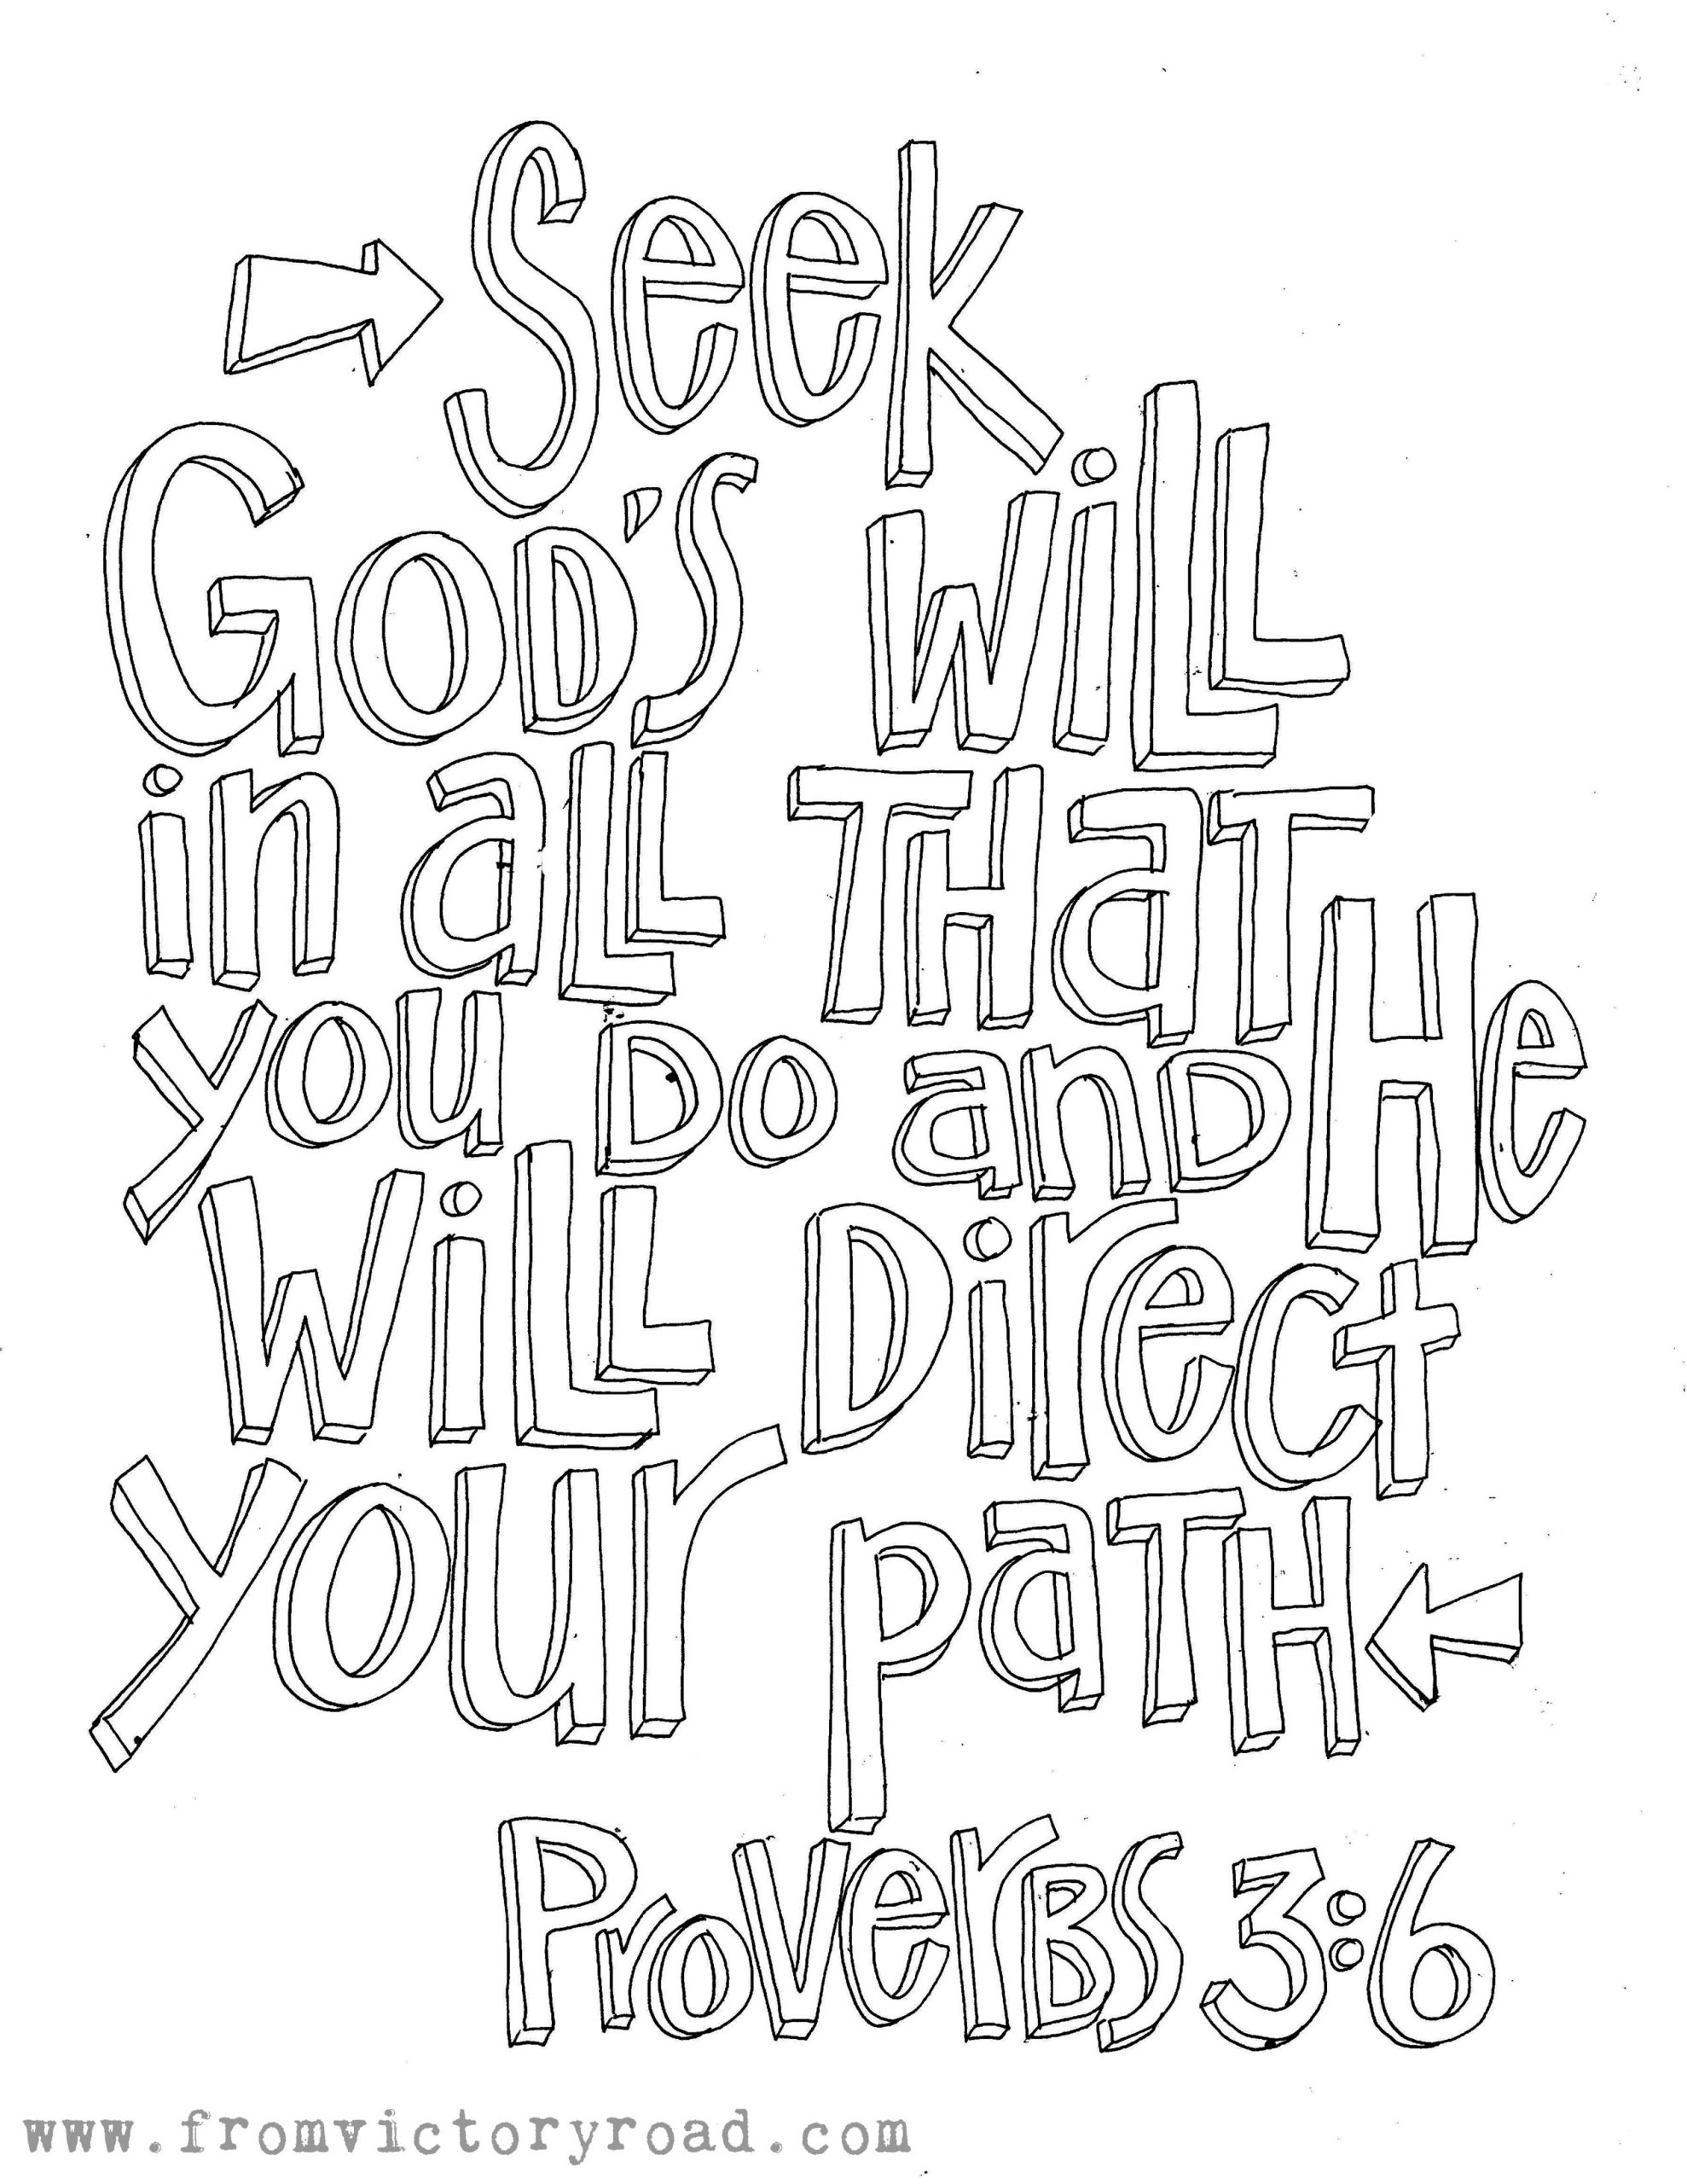 Seek
God's will
in all that
you do and He
will direct
your path
Proverbs 3:6
www.fromvictoryroad.com